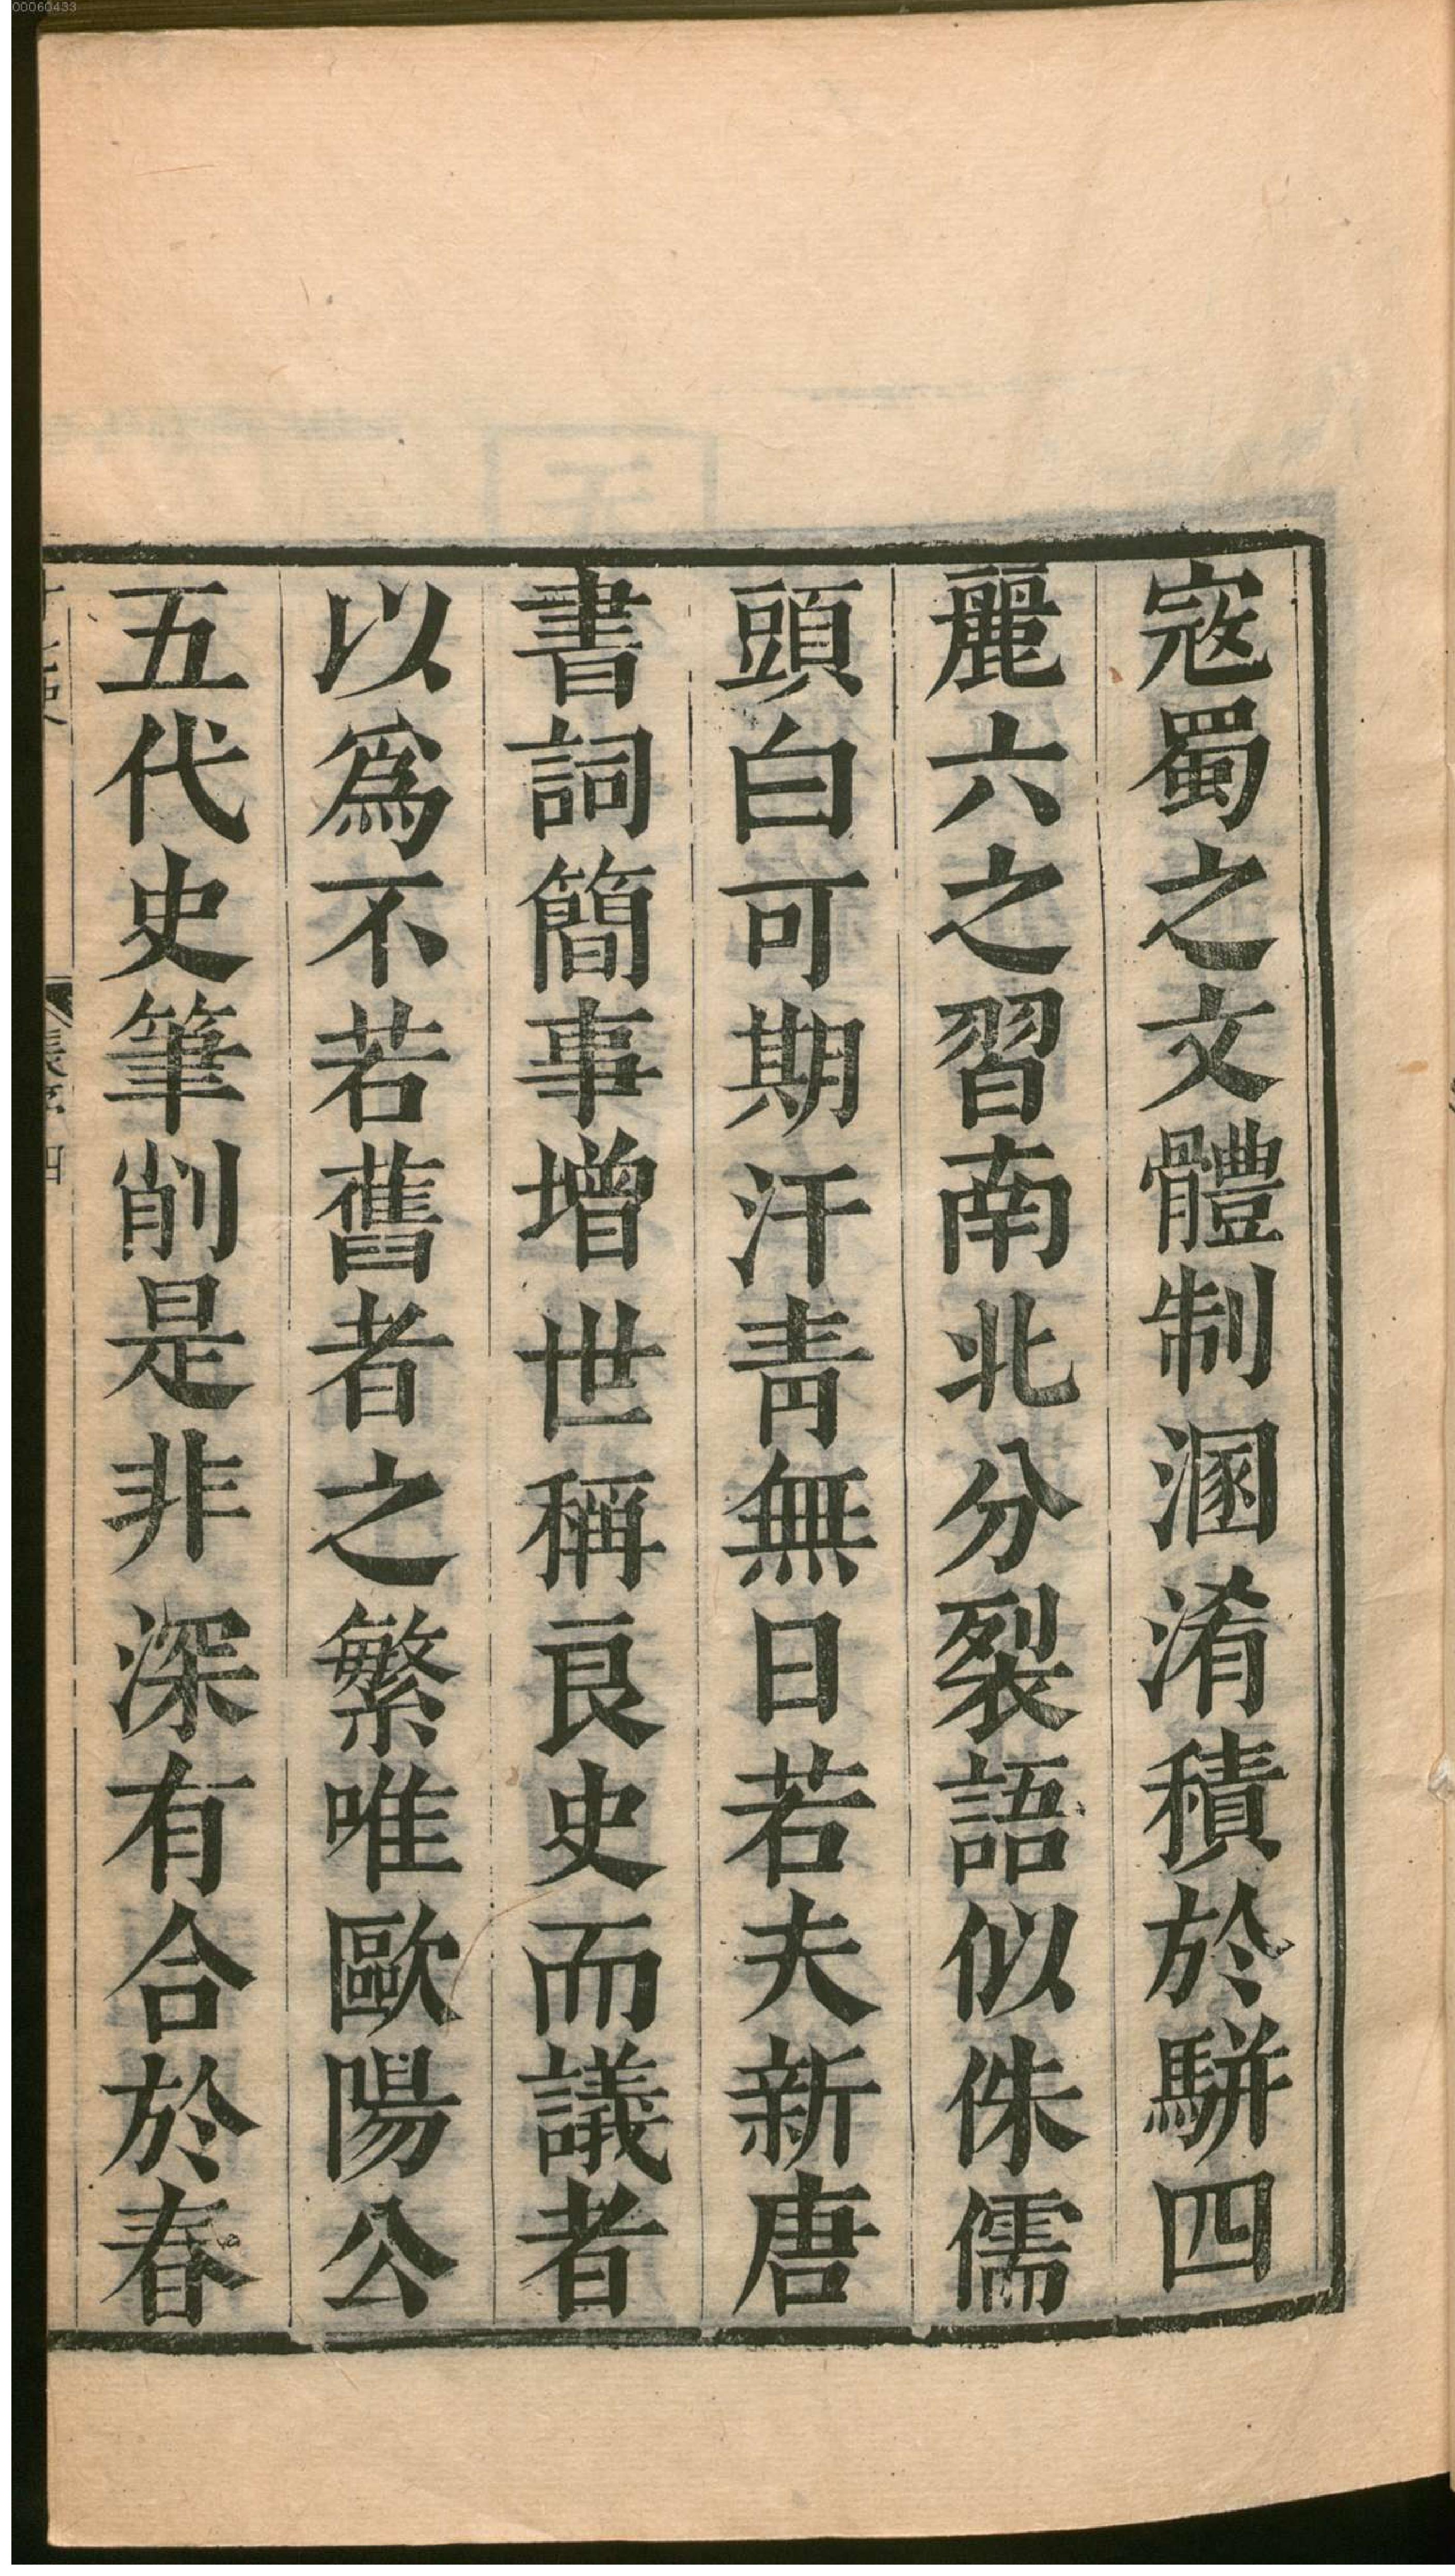 00060433
寇蜀之文體制溷淆積於駢四
麗六之習南北分裂語似侏儒
頭白可期汗靑無日若夫新唐
書詞簡事增世稱良史而議者
以爲不若舊者之繁唯歐陽公
五代史筆削是非深有合於春